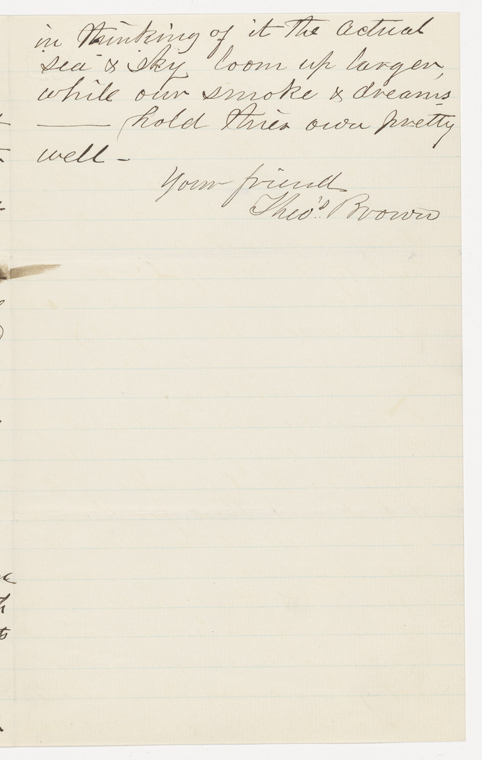 in thinking of it the actual
sea & sky loom up larger,
while our smoke & dreams
—— hold their own pretty
well –
Your friend
Theo's Brown